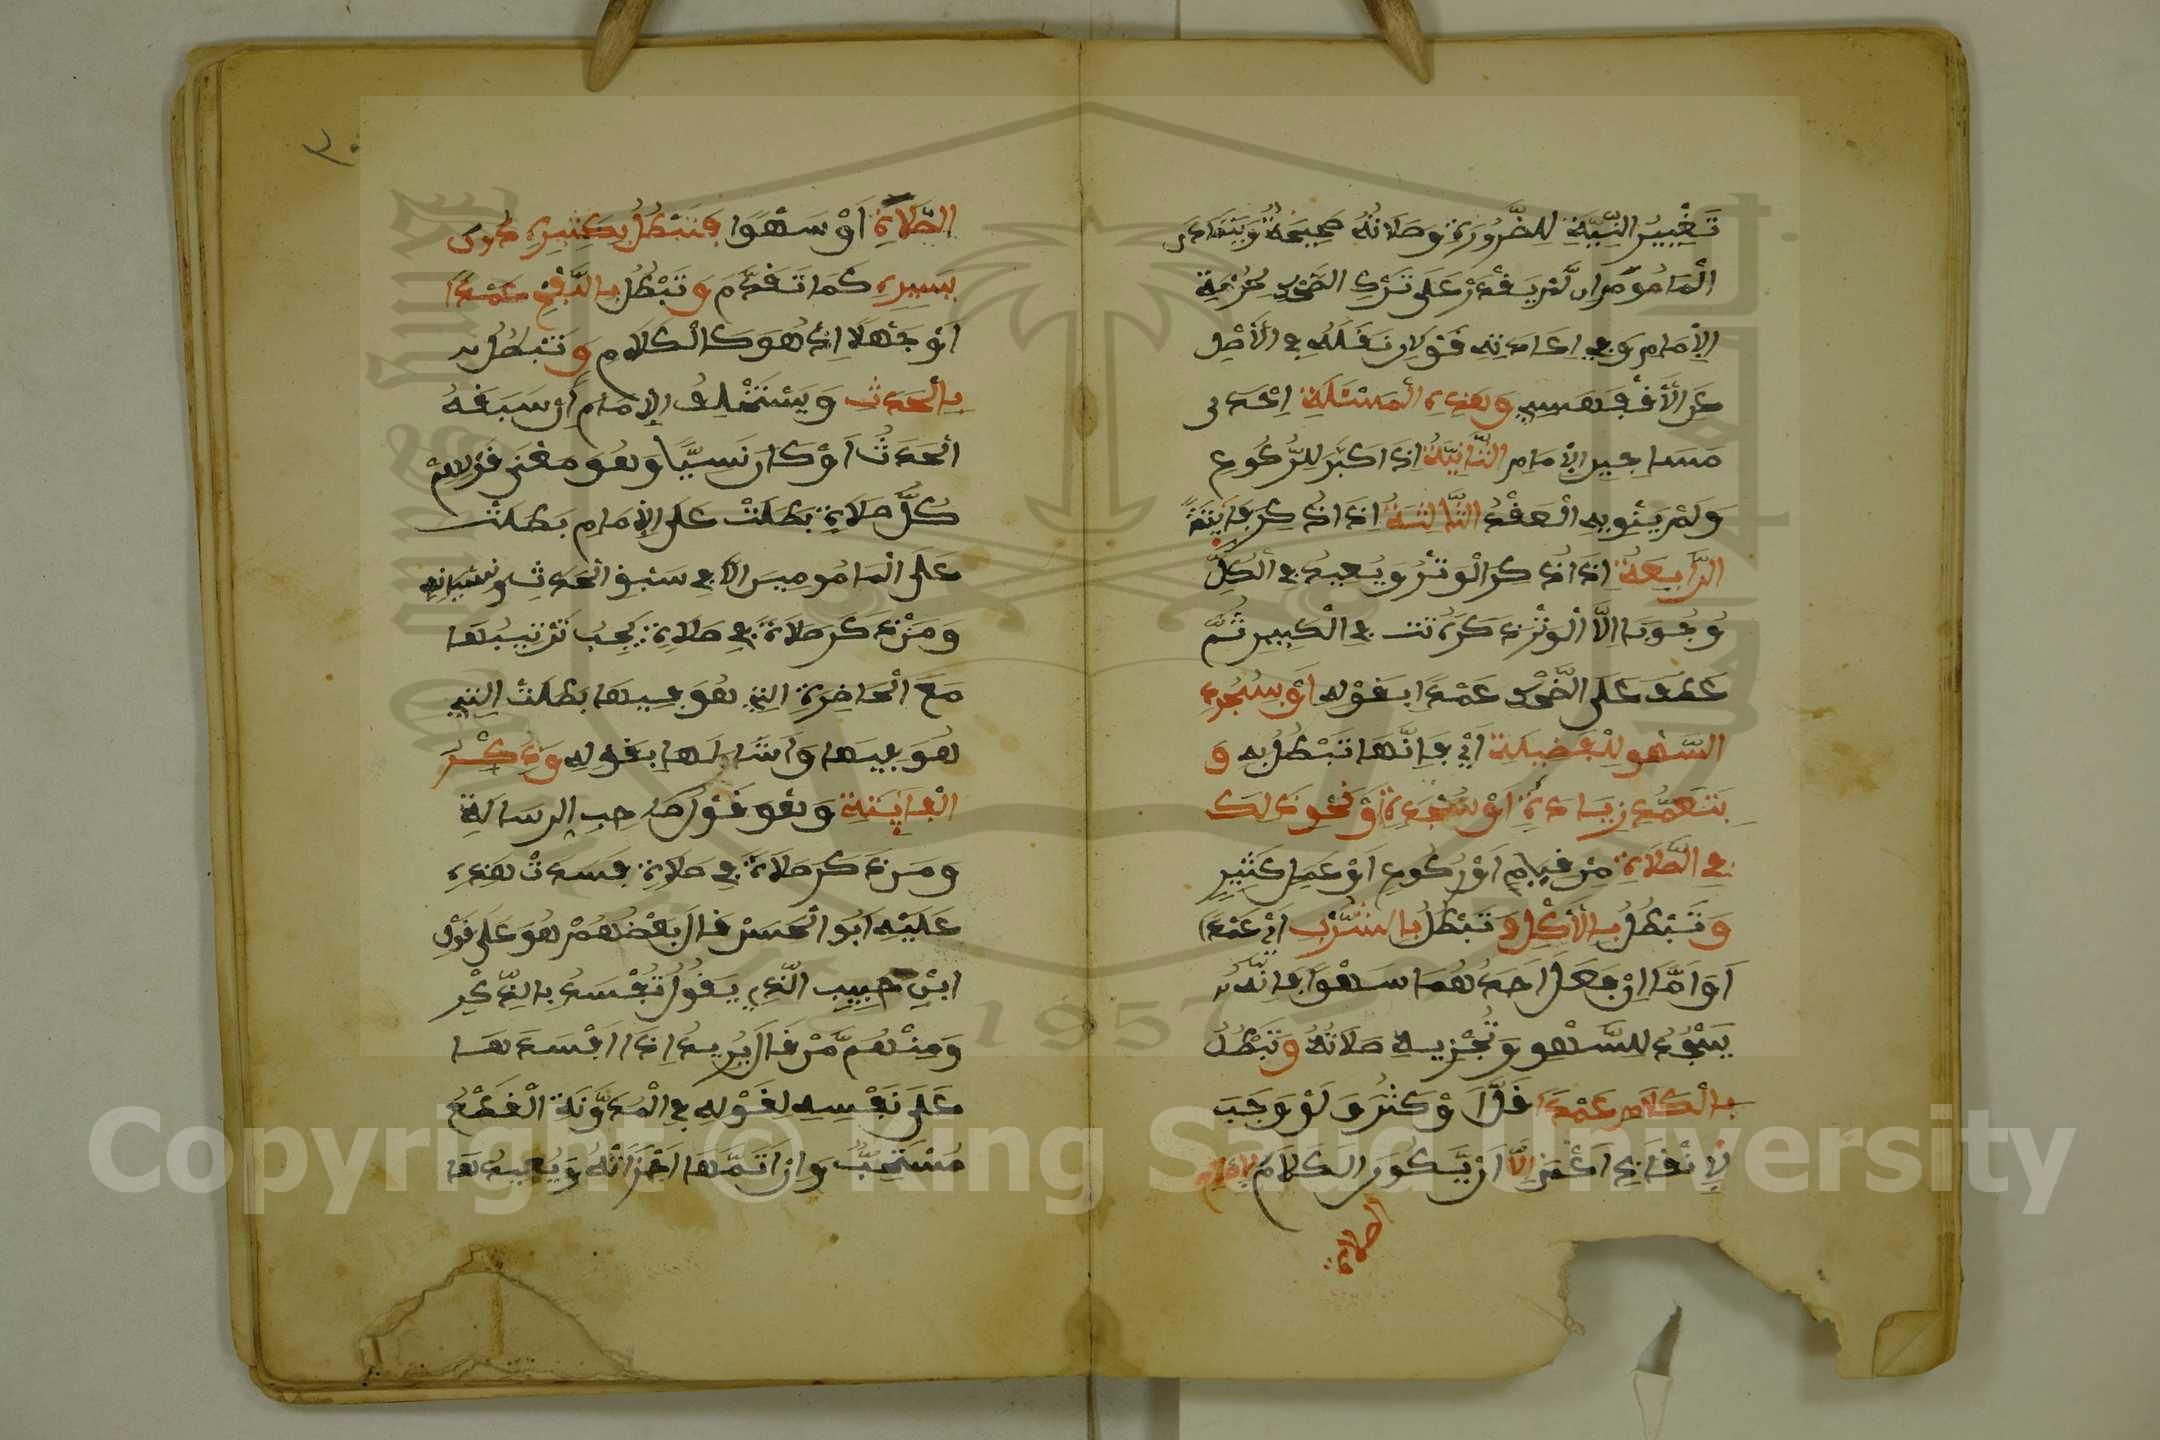 تَغْيِيرُ النِّيَّةِ لِلضَّرُورَةِ وَصَلَاتُهُ صَحِيحَةٌ وَيَتَمَادَى
الْمَامُومُ اِن لَّمْ يَقْدِرْ عَلَى تَرْكِ الضَّحْكِ لِحُرْمَةِ
الاِمَامِ وَفِي اِعَادَتِهِ قَوْلَانِ نَقَلَهُ فِي الْأَصْلِ
عَنِ الْأَقْفَهْسِي وَهَذِهِ الْمَسْئَلَةِ اِحْدَى
مَسَاجِينِ الْاِمَامِ الثَّانِيَةُ اِذَا كَبَّرَ لِلرُّكُوعِ
وَلَمْ يَنْوِ بِهِ الْعَقْدَ الثَّالِثَةُ اِذَا ذَكَرَ فَايِتَةً
الرَّابِعَةُ اِذَا ذَكَرَ الْوَتْرَ وَيُعِيدُ فِي الْكُلِّ
وُجُوبًا اِلَّا الْوَتْرَ ذَكَرَهُ تت فِي الْكَبِيرِ ثُمَّ
عَطَفَ عَلَى الضَّحْكِ عَمْدًا بِقَوْلِهِ أَوْ بِسُجُودِ
السَّهْوِ لِلْفَضِيلَةِ اَيْ فَاِنَّهَا تَبْطُلُ بِهِ وَ
بِتَعَمُّدِ زِيَادَةِ أَوْ سَجْدَةٍ أَوْ نَحْوِ ذَلِكَ
فِي الصَّلَاةِ مِنْ قِيَامٍ أَوْ رُكُوعٍ أَوْ عَمَلٍ كَثِيرٍ
وَتَبْطُلُ بِالْأَكْلِ وَتَبْطُلُ بِالشُّرْبِ أَيْ عَمْدًا
اَوَ اَمَّا اِنْ فَعَلَ اَحَدَهُمَا سَهْوًا فَاِنَّهُ
يَسْجُدُ لِلسَّهْوِ وَتُجْزِيهِ صَلَاتُهُ وَتَبْطُلُ
بِالْكَلَامِ عَمْدًا قَلَّ اَوْ كَثُرَ وَلَوْ وَجَبَ
لِاِنْقَاذِ اَعْمَى اِلَّا اَنْ يَّكُونَ الْكَلَامُ لِاِصْلَاحِ
الصلاة
٣٠
الصَّلَاةِ اَوْ سَهْوًا فَتَبْطُلُ بِكَثِيرِهِ دُونَ
يَسِيرِهِ كَمَا تَقَدَّمَ وَتَبْطُلُ بِالنَّفْخِ عَمْدًا
اَوْ جَهْلًا اِذْ هُوَ كَالْكَلَامِ وَتَبْطُلُ
بِالْحَدَثِ وَيَسْتَخْلِفُ الاِمَامُ اِنْ سَبَقَهُ
الْحَدَثُ اَوْ كَانَ نَسِيًّا وَهُوَ مَعْنَى قَوْلِهِمْ
كُلُّ صَلَاةٍ بَطَلَتْ عَلَى الْاِمَامِ بَطَلَتْ
عَلَى الْمَامُومِينَ اِلَّا فِي سَبْقِ الْحَدَثِ وَنِسْيَانِهِ
وَمَنْ ذَكَرَ صَلَاةً فِي صَلَاةٍ يَجِبُ تَرْتِيبُهَا
مَعَ الْحَاضِرَةِ الَّتِي هُوَ فِيهَا بَطَلَتْ الَّتِي
هُوَ فِيهَا وَاَشَارَ لَهَا بِقَوْلِهِ وَذِكْرُ
الْفَايِتَةِ وَهُوَ قَوْلُ صَاحِبِ الرِّسَالَةِ
وَمَنْ ذَكَرَ صَلَاةً فِي صَلَاةٍ فَسَدَتْ هَذِهِ
عَلَيْهِ اَبُو الْحَسَنِ قَالَ بَعْضُهُمْ هُوَ عَلَى قَوْلِ
ابْنِ حَبِيبِ الَّذِي يَقُولُ تَفْسُدُ بِالذِّكْرِ
وَمِنْهُم مَّنْ قَالَ يُرِيدُ اِذَا اَفْسَدَهَا
عَلَى نَفْسِهِ لِقَوْلِهِ فِي الْمُدَوَّنَةِ الْقَطْعُ
مُسْتَحَبٌّ وَاِنْ اَتَمَّهَا اَجْزَاَتْهُ وَيُعِيدُهَا
Copyright © King Saud University
1957